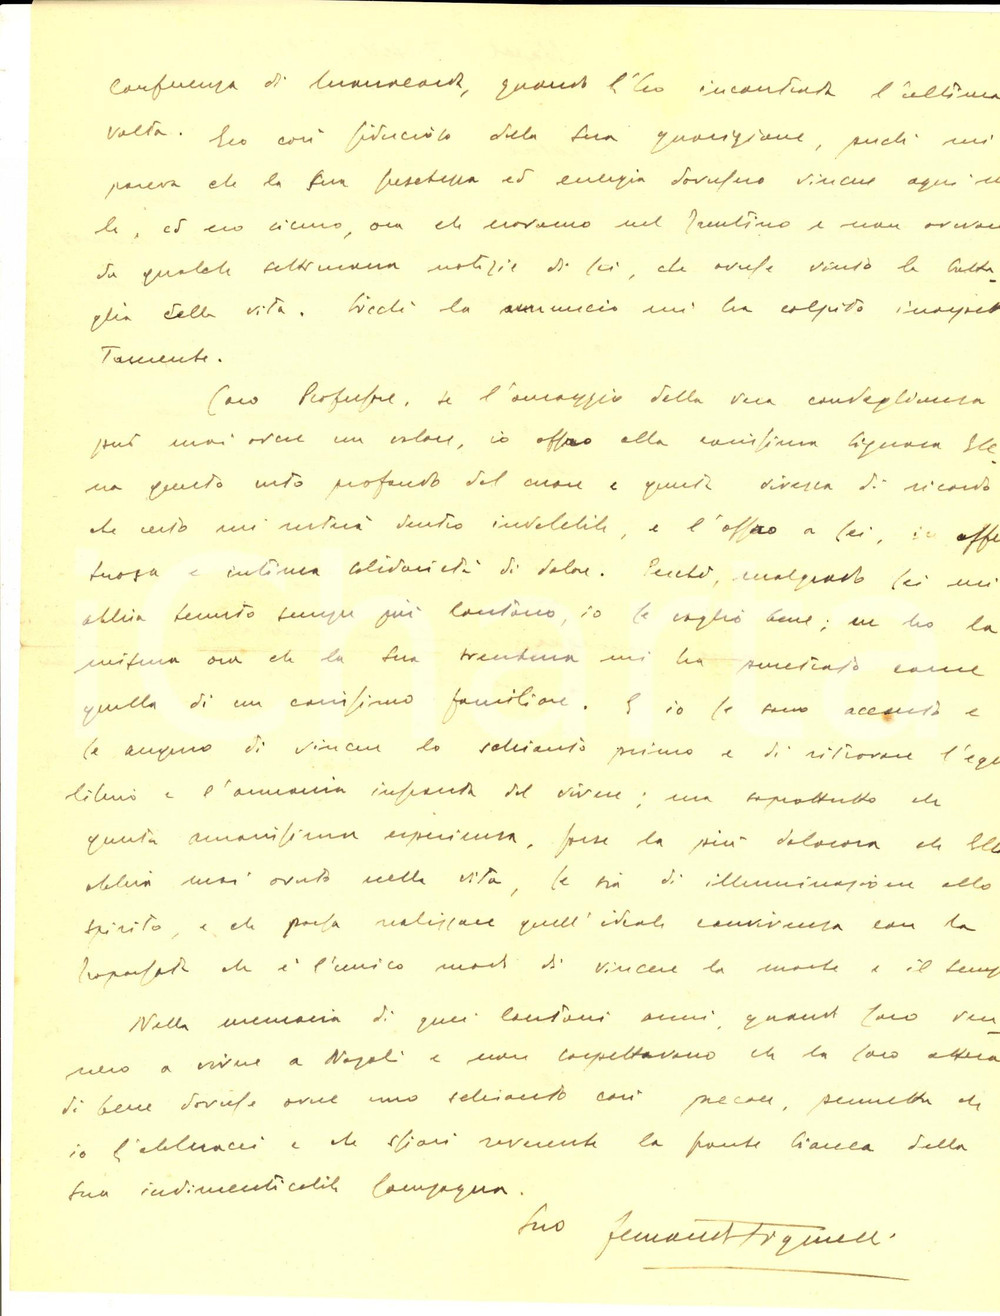 conferenza di , quando l'ho incontrata l'ultima
volta. Ero così fiducioso della Sua guarigione, perché mi
pareva che la Sua freschezza ed energia dovessero vincere ogni
, ed ero sicuro, ora che eravamo nel Trentino e non avevamo
da qualche settimana notizie di Lei, che avesse vinto la batta-
glia della vita. Sicché la annuncio mi ha colpito inaspet
tamente.
Caro Professore, se l'omaggio della vera condoglianza
può mai avere un valore, io offro alla carissima Signora Ele-
na questo moto profondo del cuore e questa di ricordo
che certo mi resterà dentro indelebile, e l'offro a Lei, in affe
tuosa e intima solidarietà di dolore. Perché, malgrado Lei mi
abbia tenuto sempre più lontano, io Le voglio bene; ne ho la
misura ora che la Sua sventura mi ha percosso come
quella di un carissimo familiare. E io Le sono accanto e
Le auguro di vincere lo schianto primo e di ritrovare l'equi
librio e l'armonia del vivere; ma soprattutto che
questa amarissima esperienza, forse la più dolorosa che Ella
abbia mai avuto nella vita, Le sia di illuminazione allo
spirito, e che possa realizzare quell'ideale convivenza con la
Trapassata che è l'unico modo di vincere la morte e il temp
Nella memoria di quei lontani anni, quando Loro ven-
nero a vivere a Napoli e non sospettavano che la loro attesa
di bene dovesse avere uno schianto così precoce, permetta che
io L'abbracci e che sfiori reverente la fronte bianca della
Sua indimenticabile Compagna.
Suo